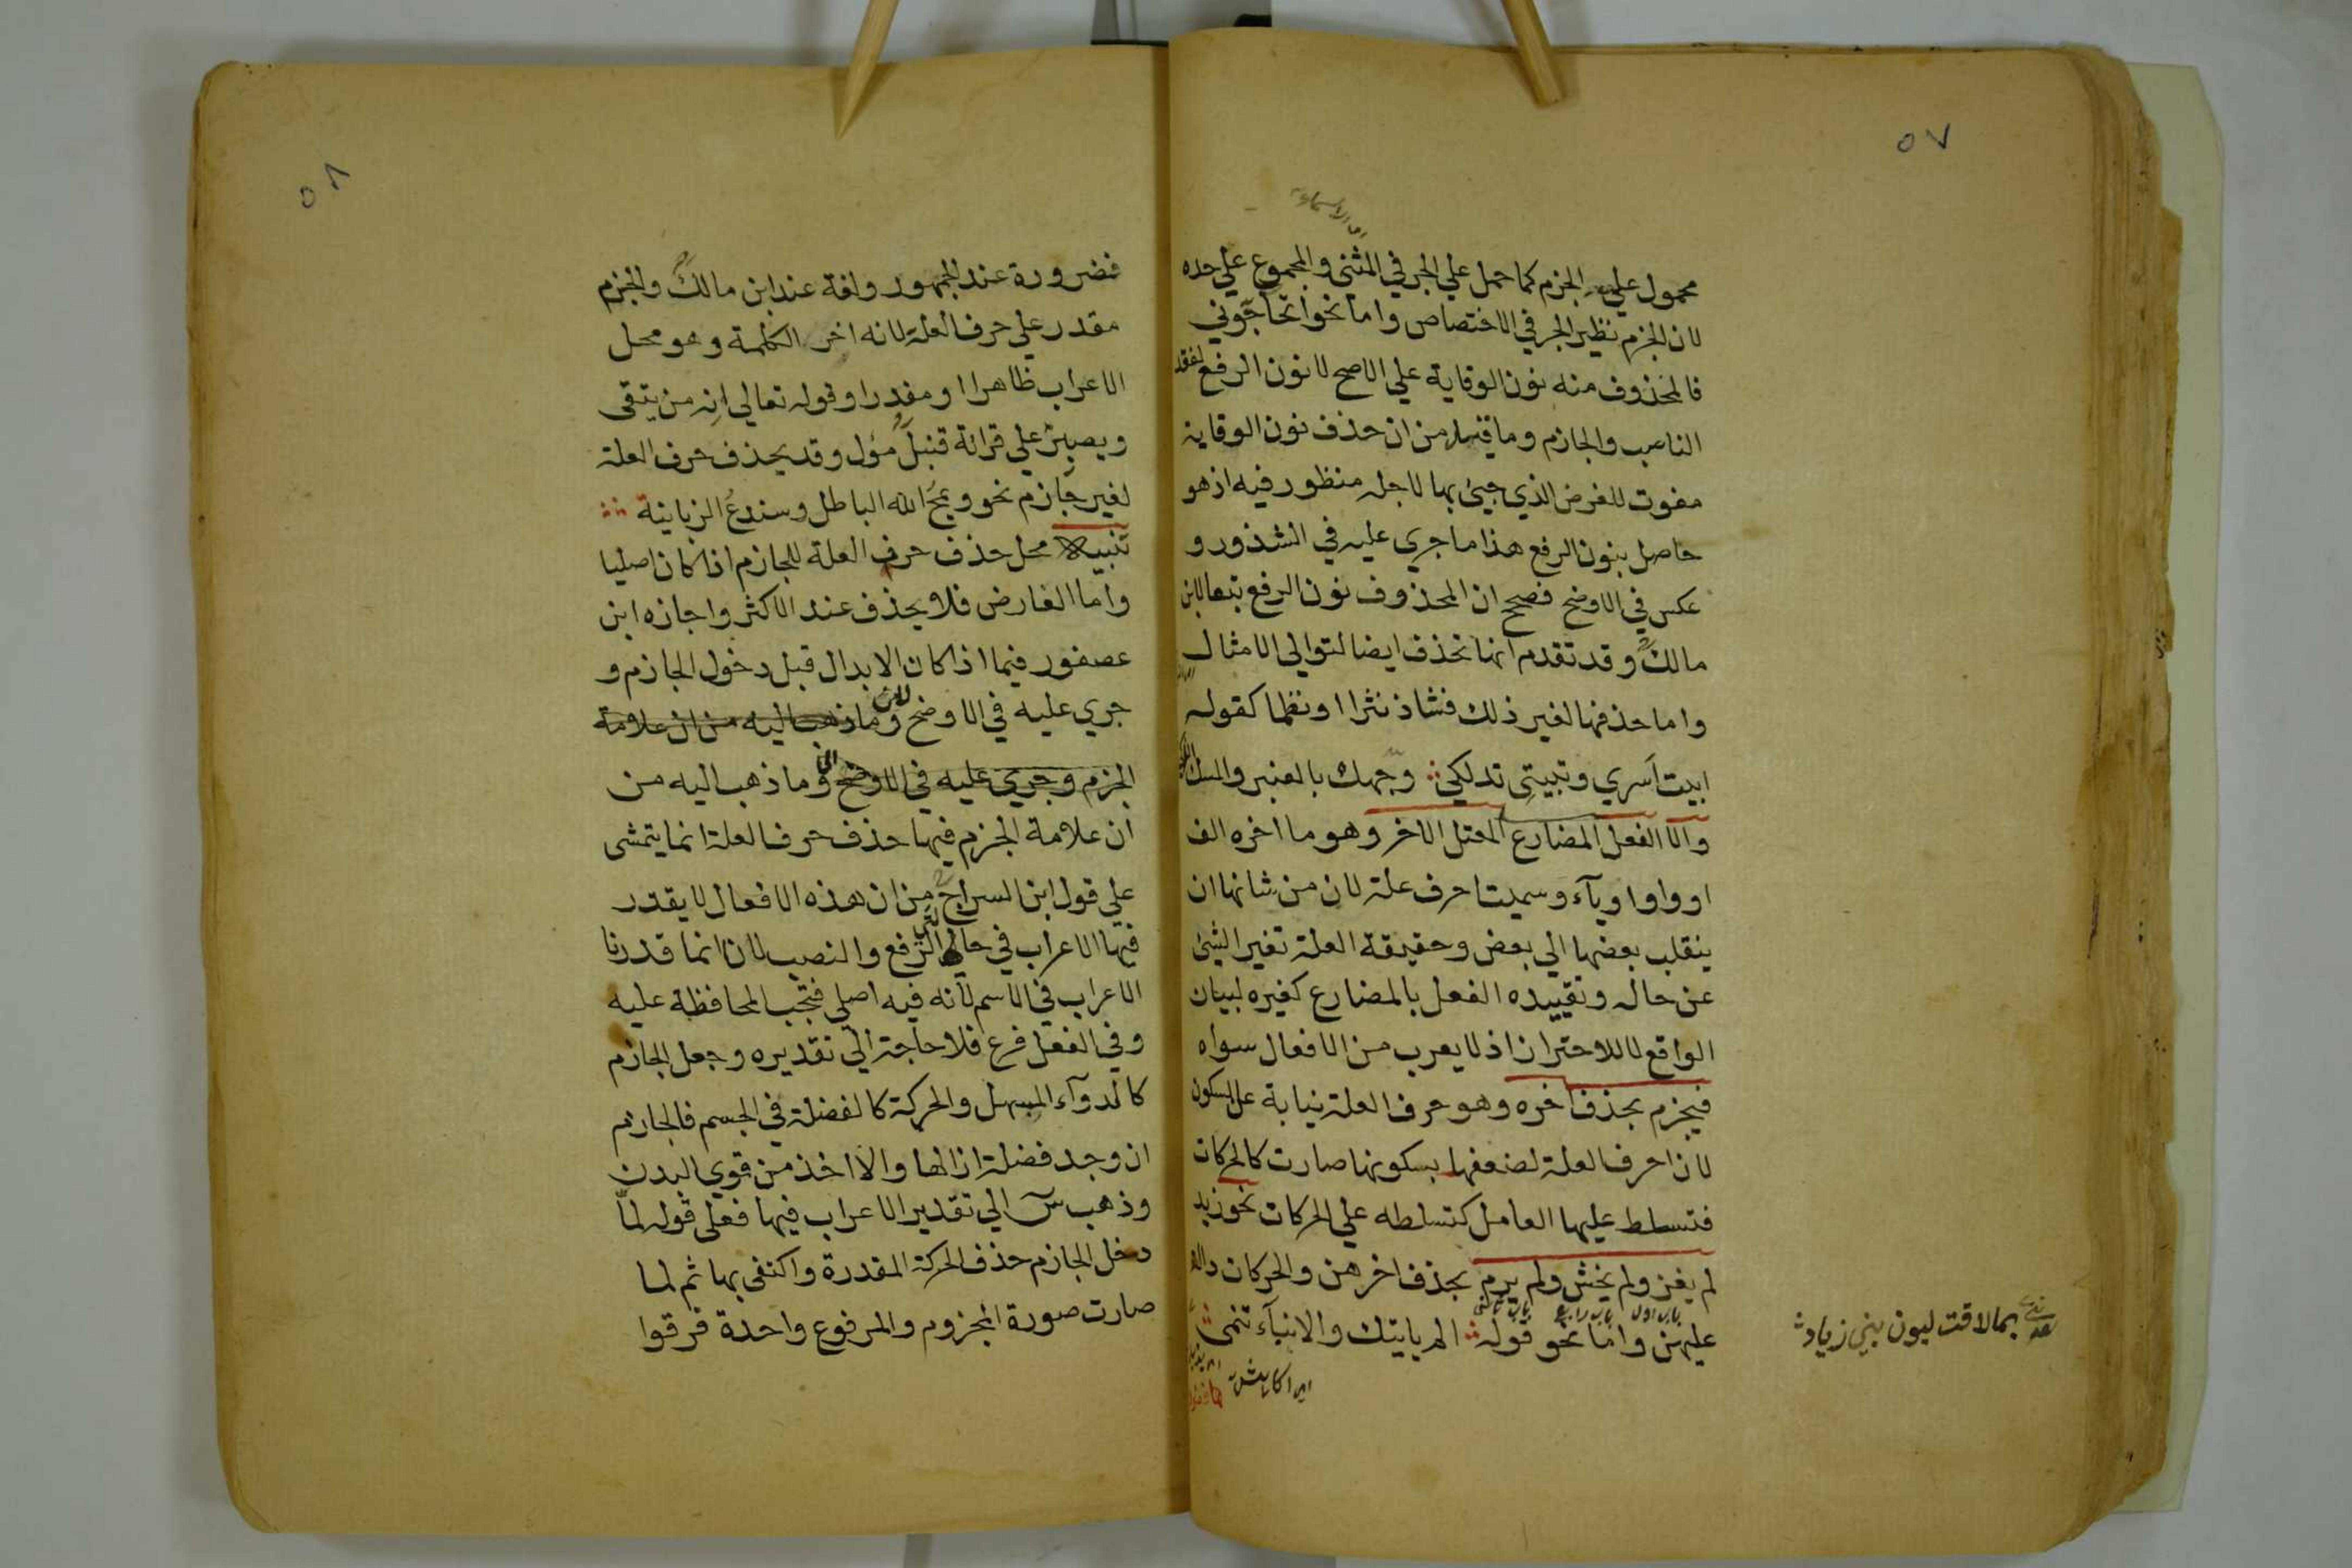 ٥٧
محمول علي الجزم كما حمل علي الجر في المثنى والمجموع علي حده
لان الجزم نظير الجر في الاختصاص واما نحو اتحاجوني
فالمحذوف منه نون الوقاية علي الاصح لا نون الرفع لفقد
الناصب والجازم وما قيل من ان حذف نون الوقاية
مفوت للغرض الذي جيئ بها لاجله منظور فيه اذ هو
حاصل بنون الرفع هذا ما جري عليه في الشذور و
عكس في الاوضح فصحح ان المحذوف نون الرفع تبعا لابن
مالك وقد تقدم انها تحذف ايضا لتوالي الامثال
واما حذفها لغير ذلك فشاذ نثرا او نظما كقوله
ابيت اسري وتبيتي تدلكي وجهك بالعنبر والمسك
والا الفعل المضارع المعتل الاخر وهو ما اخره الف
او واو او يآء وسميت احرف علة لان من شانها ان
ينقلب بعضها الي بعض وحقيقة العلة تغير الشئ
عن حاله وتقييده الفعل بالمضارع كغيره لبيان
الواقع لا للاحتراز اذ لا يعرب من الافعال سواه
فيجزم بحذف اخره وهو حرف العلة نيابة عن السكون
لان احرف العلة لضعفها بسكونها صارت كالحركات
فتسلط عليها العامل كتسلطه علي الحركات نحو زيد
لم يغز ولم يخش ولم يرم بحذف اخرهن والحركات دالة
باب اول باب رابع باب ثاني
عليهن واما نحو قوله الم ياتيك والانبآء تنمى
بما لاقت لبون بني زياد
٥٨
فضرورة عند الجمهور ولغة عند ابن مالك والجزم
مقدر علي حرف العلة لانه اخر الكلمة وهو محل
الاعراب ظاهرا او مقدرا وقوله تعالي انه من يتقى
ويصبر علي قرائة قنبل مؤل وقد يحذف حرف العلة
لغير جازم نحو ويمح الله الباطل وسندع الزبانية
تنبيه محل حذف حرف العلة للجازم اذا كان اصليا
واما العارض فلا يحذف عند الاكثر واجازه ابن
عصفور فيما اذا كان الابدال قبل دخول الجازم و
جري عليه في الاوضح وما ذهب اليه من ان علامة
الجزم وجري عليه في الاوضح وما ذهب اليه من
ان علامة الجزم فيها حذف حرف العلة انما يتمشى
علي قول ابن السراج من ان هذه الافعال لا يقدر
فيها الاعراب في حالة الرفع والنصب لان انما قدرنا
الاعراب في الاسم لانه فيه اصلي فتجب المحافظة عليه
وفي الفعل فرع فلا حاجة الي تقديره وجعل الجازم
كالدوآء المسهل والحركة كالفضلة في الجسم فالجازم
ان وجد فضلة ازالها والا اخذ من قوي البدن
وذهب س الي تقدير الاعراب فيها فعلى قوله لما
دخل الجازم حذف الحركة المقدرة واكتفى بها ثم لما
صارت صورة المجزوم والمرفوع واحدة فرقوا